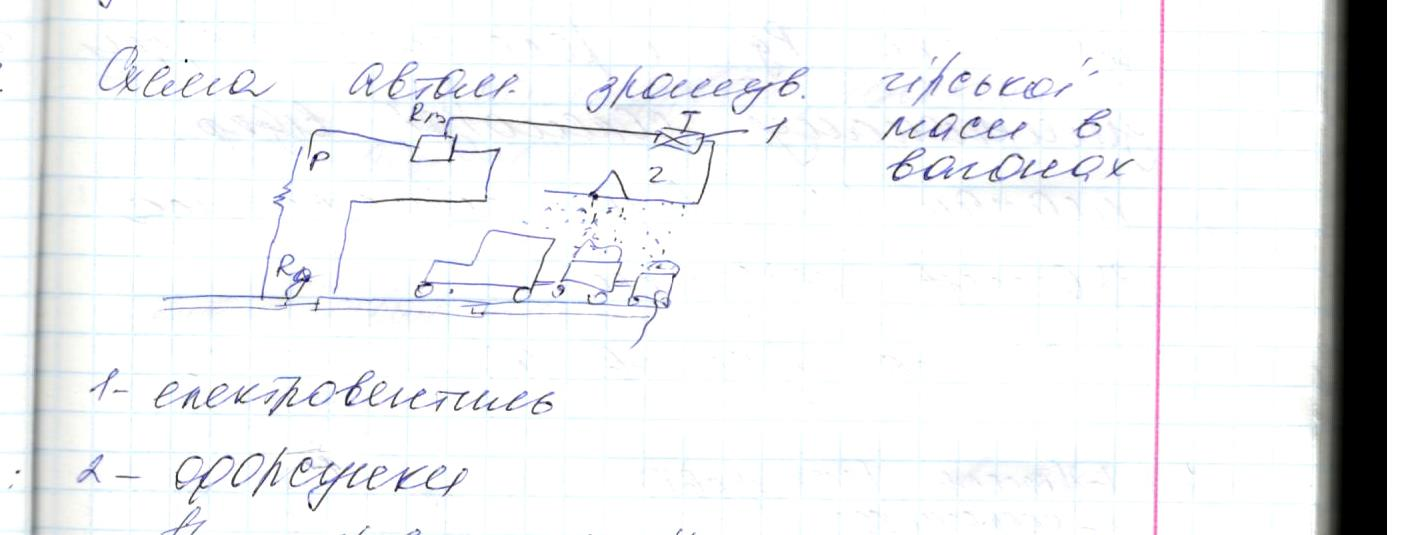 Схема автом. зрошув. гірської
маси в
вагонах
Rп
I
1
P
2
Rд
1- електровентиль
2 - форсунки